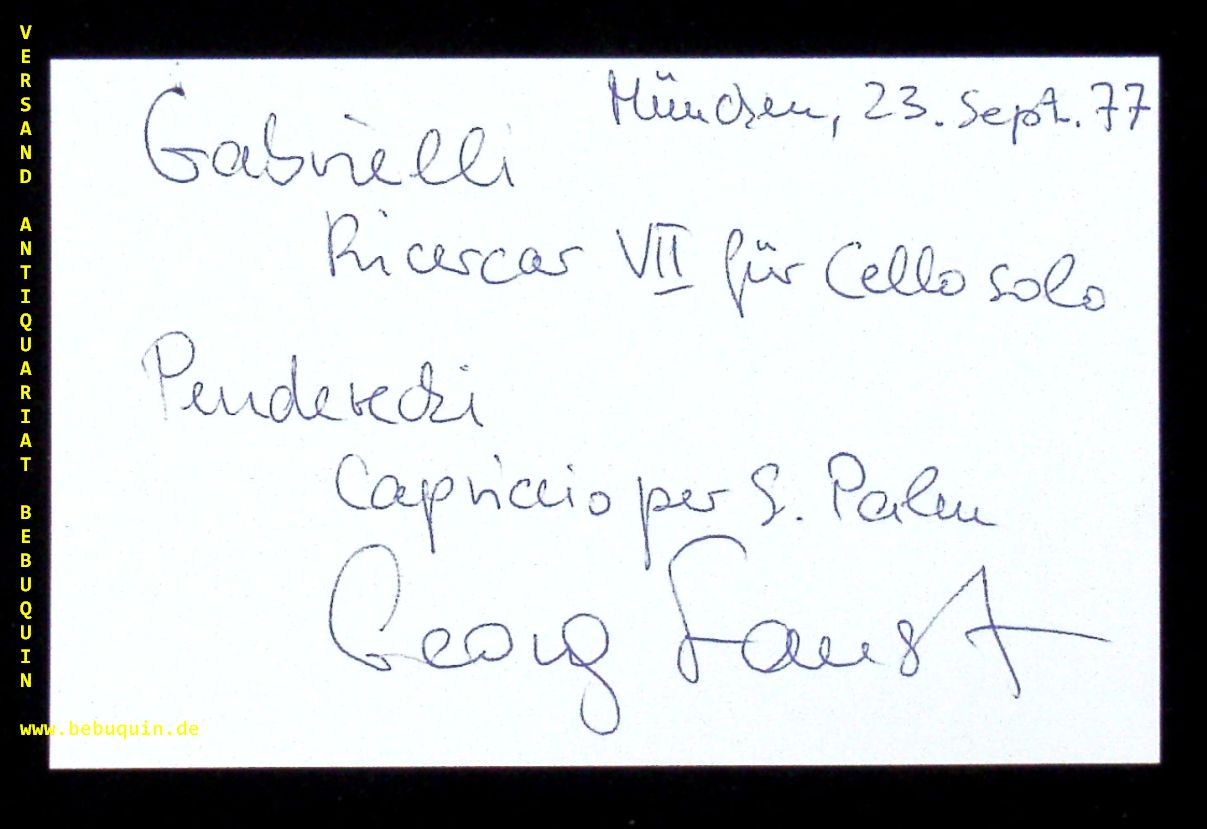 München, 23. Sept. 77
Gabrielli
Ricercar VII für Cello solo
Penderecki
Capriccio per S. Palm
Georg Faust
VERSAND ANTIQUARIAT BEBUQUIN
www.bebuquin.de